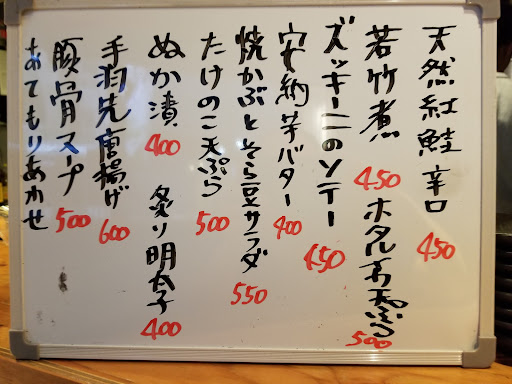 天然紅鮭 辛口 450
若竹煮 450
ホタルイカ天ぷら 500
ズッキーニのソテー 450
安納芋バター 400
焼かぶとそら豆サラダ 550
たけのこ天ぷら 500
ぬか漬 400
炙り明太子 400
手羽先唐揚げ 600
豚骨スープ 500
おてもりあわせ